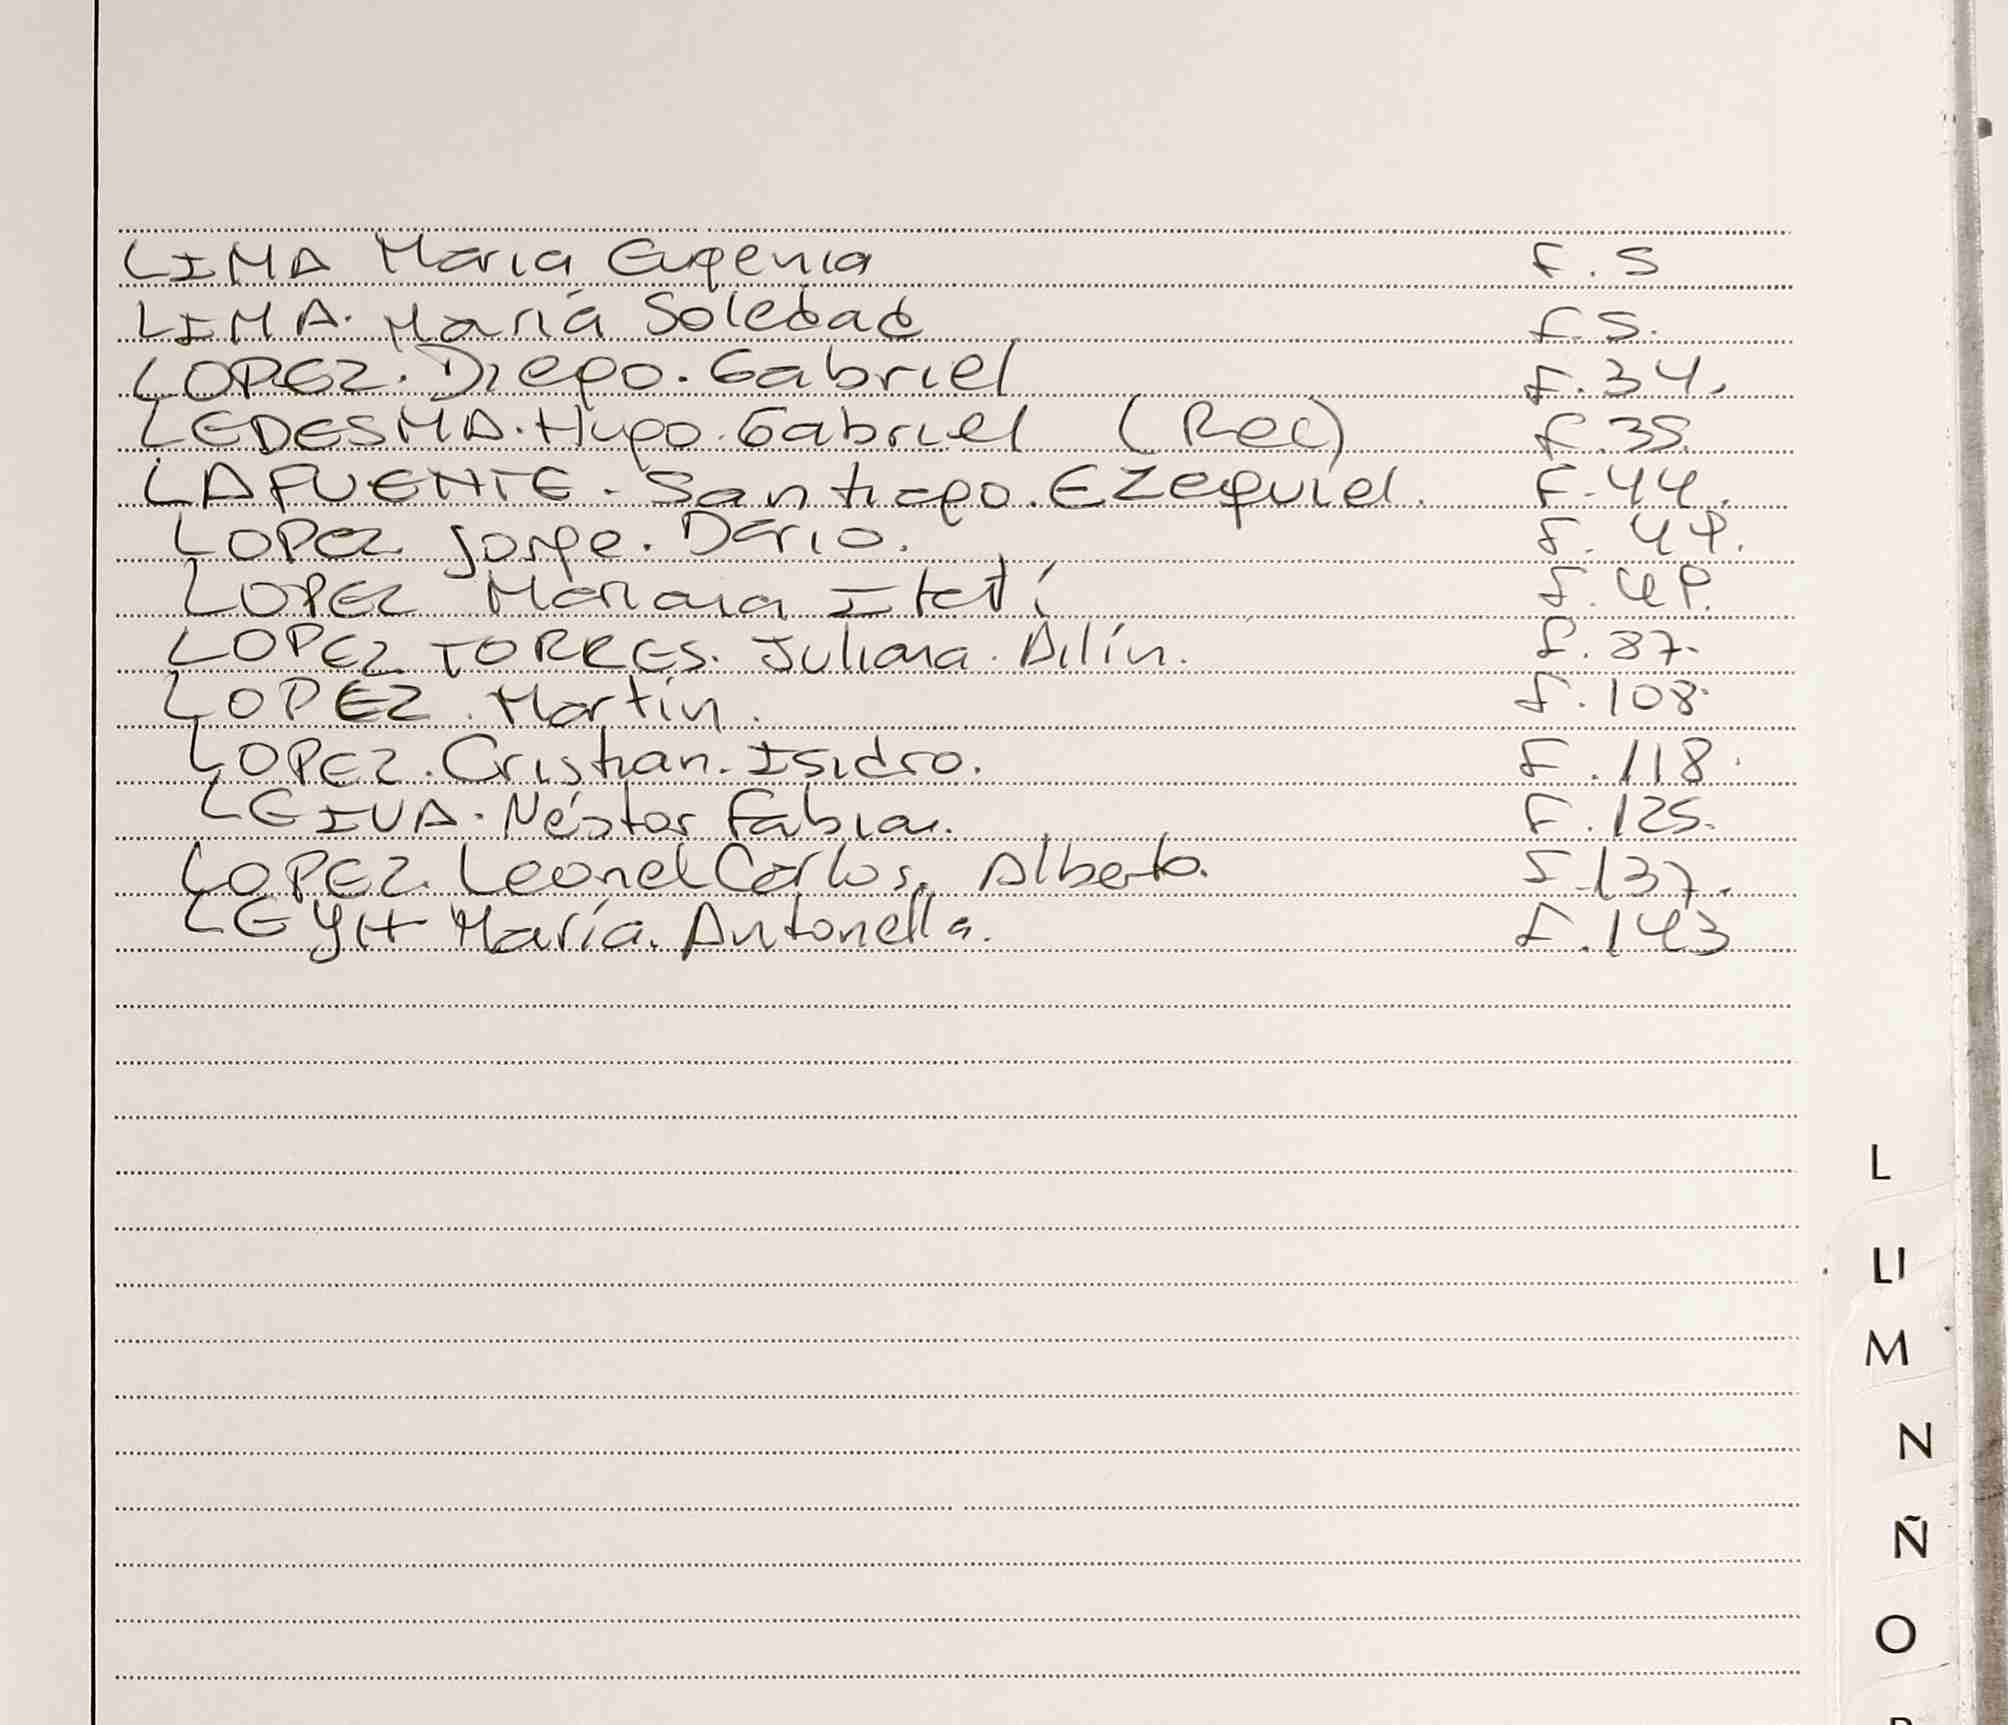 LIMA María Eugenia F. 5
LIMA. María Soledad F. 5.
LOPEZ. Diego. Gabriel F. 34.
LEDESMA. Hugo. Gabriel (Rec) F. 35.
LAFUENTE. Santiago. Ezequiel. F. 44.
LOPEZ Jorge. Darío. F. 49.
LOPEZ Mariana Itatí F. 49.
LOPEZ TORRES. Juliana. Ailín. F. 87.
LOPEZ. Martín. F. 108.
LOPEZ. Cristian. Isidro. F. 118.
LEIVA. Néstor Fabian. F. 125.
LOPEZ. Leonel Carlos. Alberto. F. 137.
María. Antonella. F. 143
L
Ll
M
N
Ñ
O